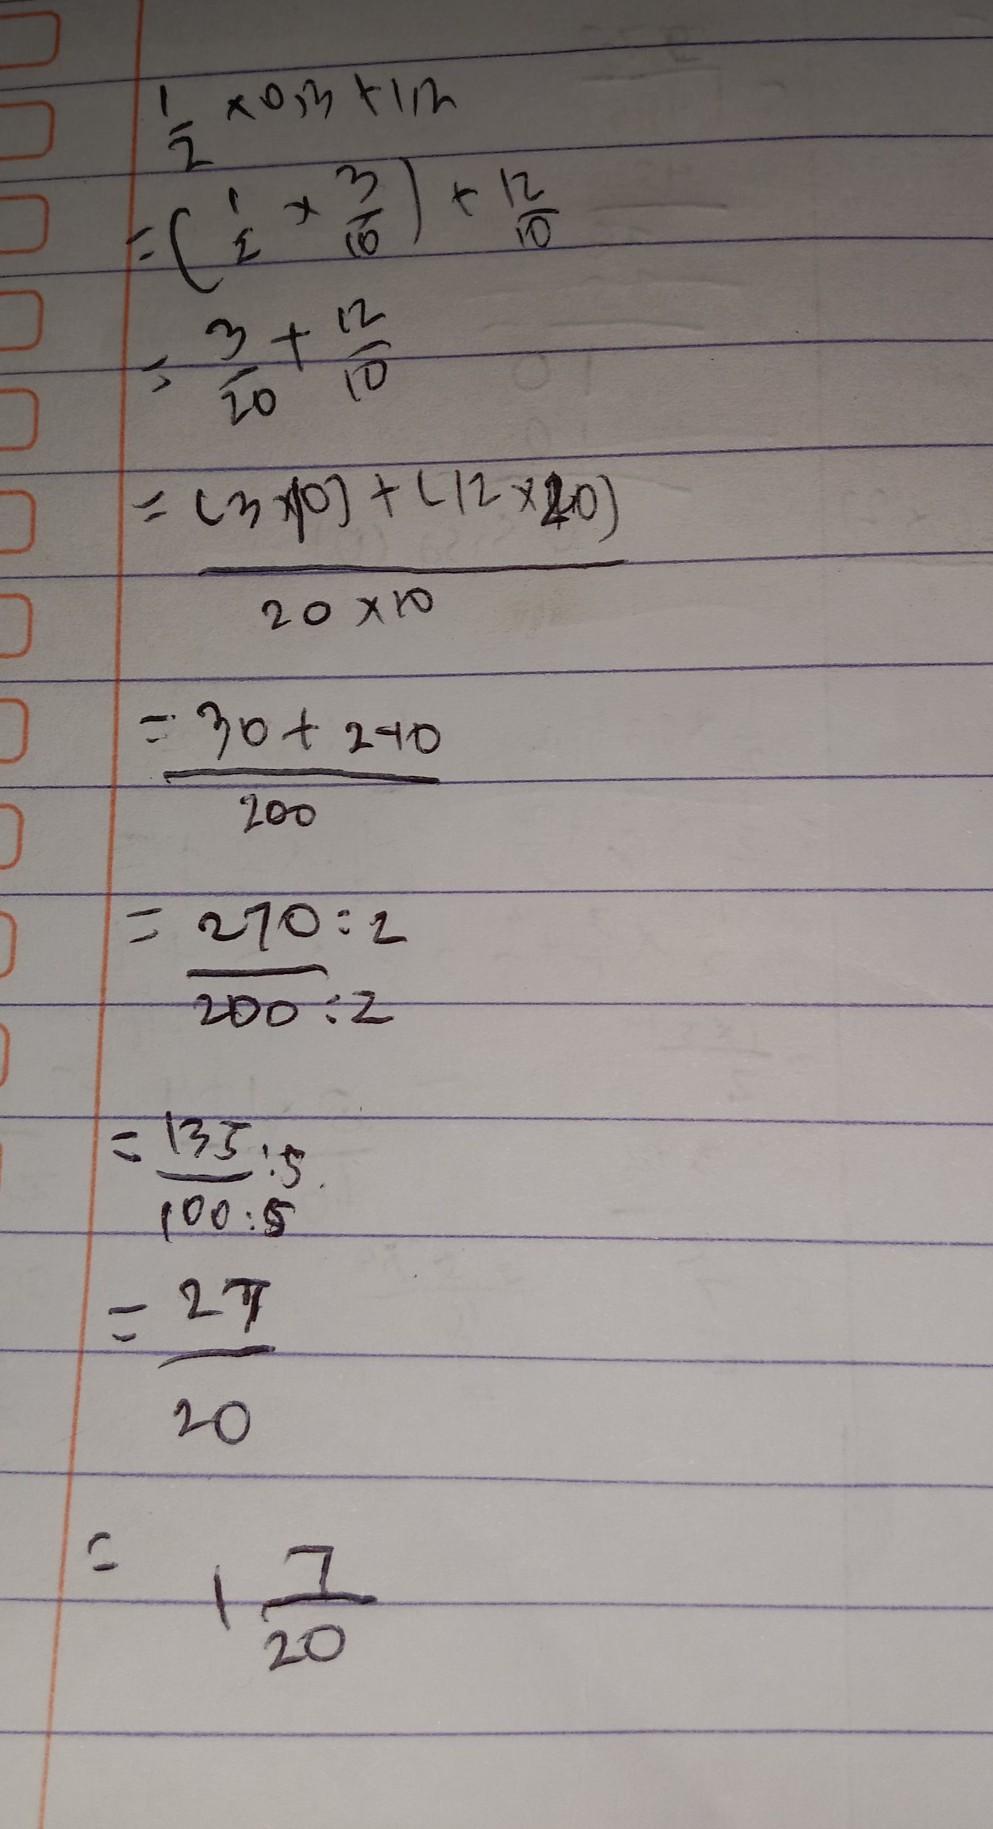 1/2 × 0,3 + 1,2
= (1/2 × 3/10) + 12/10
= 3/20 + 12/10
= (3×10) + (12×20)
20 × 10
= 30 + 240
200
= 270 : 2
200 : 2
= 135 : 5
100 : 5
= 27
20
= 1 7/20